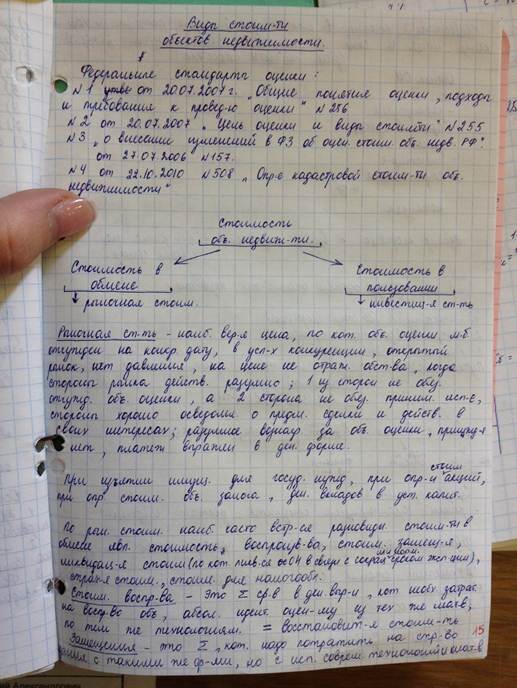 Виды стоим-ти
объектов недвижимости.
Федеральные стандарты оценки:
N1 от 20.07.2007г. "Общие понятие оценки, подходы
и требования к провед-ю оценки" N256
N2 от 20.07.2007 "Цель оценки и виды стоим-ти" N255
N3 "о внесении изменений в ФЗ об оцен. стоим. объ. недв. РФ".
от 27.07.2006 N157.
N4 от 22.10.2010 N508 "Опр-е кадастровой стоим-ти объ.
недвижимости"
Стоимость
объ. недвиж-ти.
Стоимость в
обмене
Стоимость в
пользовании
рыночная стоим.
инвестиц-я ст-ть
Рыночная ст-ть - наиб. вер-я цена, по кот. объ. оценки м.б.
отчужден на конкр. дату, в усл-х конкуренции, открытый
рынок, нет давления, на цене не отраж. обст-ва, когда
стороны рынка действ. разумно; 1 из сторон не обяз.
отчужд. объ. оценки, а 2 сторона не обяз. приним. исп-е,
стороны хорошо осведом. о предм. сделки и действ. в
своих интересах; разумное вознагр. за объ. оценки,
и нет, платеж выражен в ден. форме.
При изъятии имущ. для госуд. нужд, при опр-и стоим акций,
при опр стоим. объ. залога, ден. вкладов в уст. капит.
По рын. стоим. наиб. часто встр-ся разновидн. стоим-ти в
обмене стоимость, воспроизв-ва, стоим. замещ-я,
ликвидац-я стоим (по кот.
страх-я стоим., стоим. для налогообл.
Стоим. воспр-ва - это Σ ср-в в ден выр-и, кот необх затрат.
на воспр-во объ., абсол. идент. оцен-му из тех же мат-в,
по тем же технологиям. = восстановит-я стоим-ть
Замещения - это Σ, кот. надо потратить на стр-во
здания с такими же ф-ми, но с исп. соврем технологий и мат-в
15